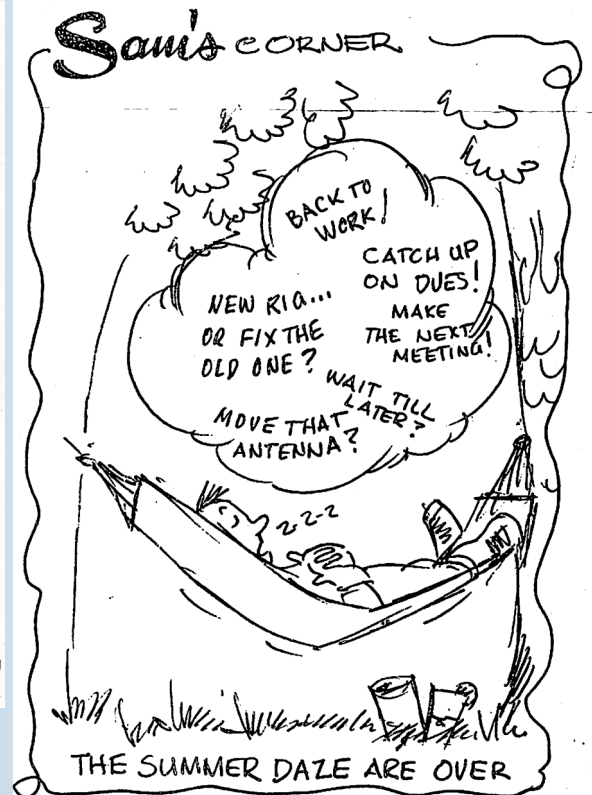 Sam's CORNER
BACK TO
WORK!
CATCH UP
ON DUES!
NEW RIG...
OR FIX THE
OLD ONE?
MAKE
THE NEXT
MEETING!
WAIT TILL
LATER?
MOVE THAT
ANTENNA?
Z-Z-Z
THE SUMMER DAZE ARE OVER